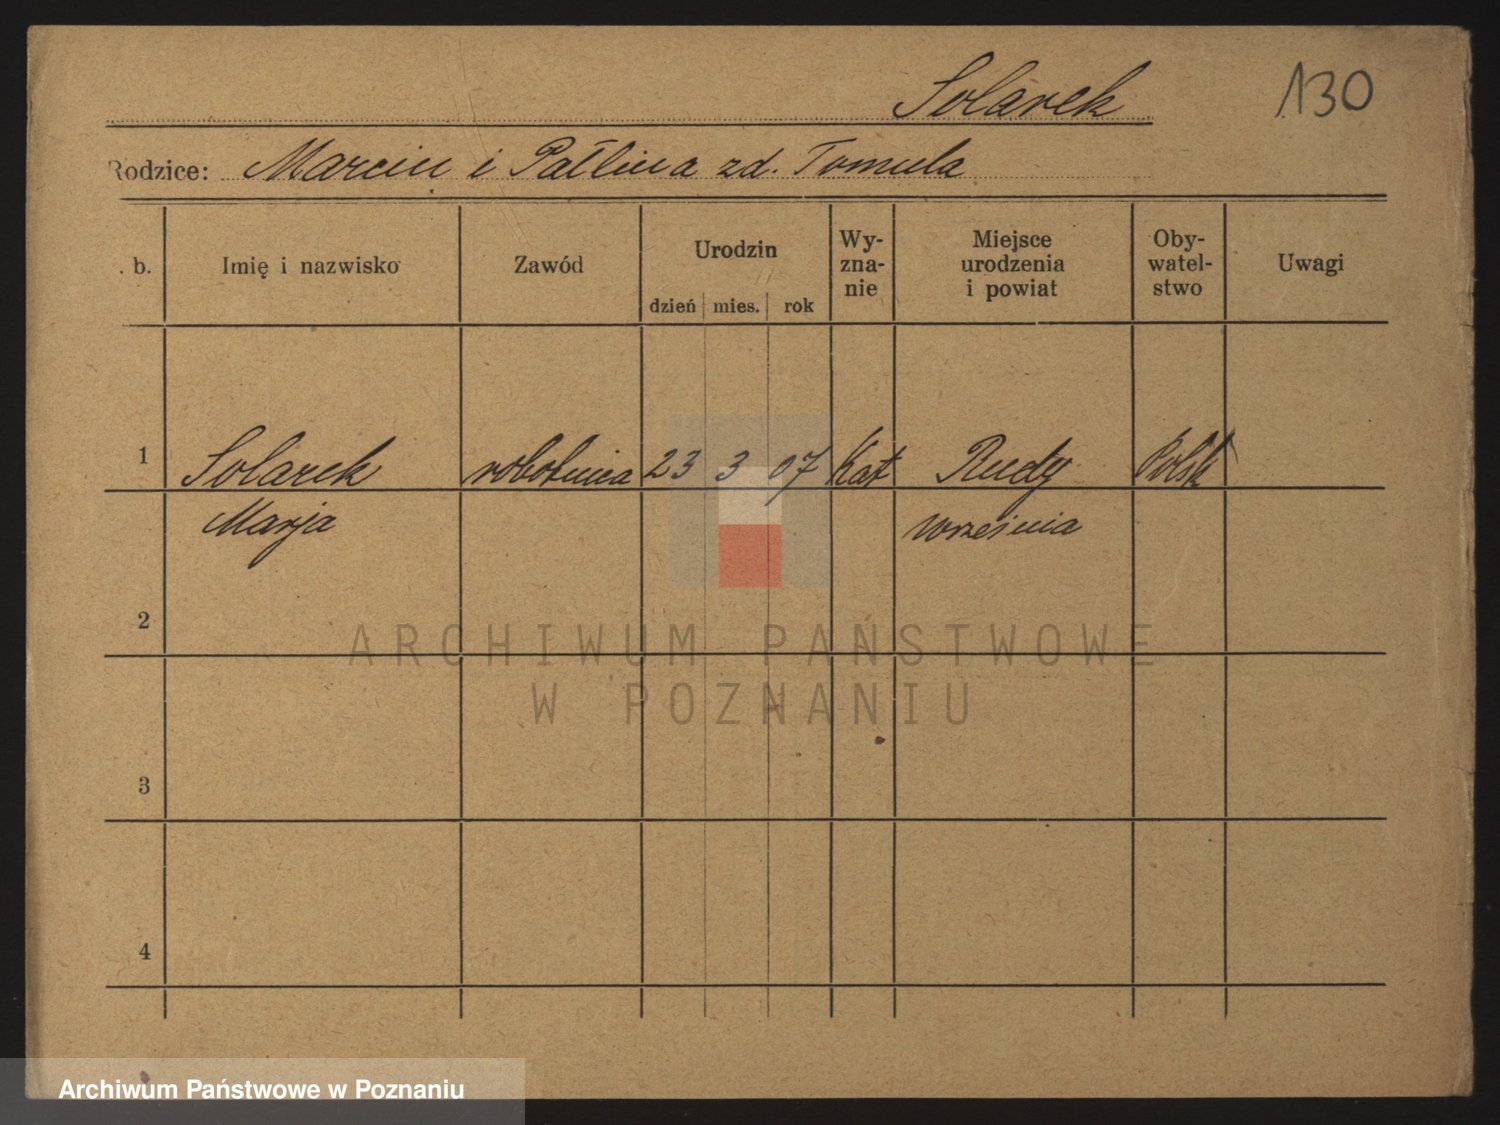 Solarek
130
Rodzice: Marcin i Pałlina zd. Tomula
. b.
Imię i nazwisko
Zawód
Urodzin
dzień mies. rok
Wy-
zna-
nie
Miejsce
urodzenia
i powiat
Oby-
watel-
stwo
Uwagi
1 Solarek robotnica 23 3 07 Kat Rudy Polsk
Marja Września
2
ARCHIWUM PAŃSTWOWE
W POZNANIU
3
4
Archiwum Państwowe w Poznaniu